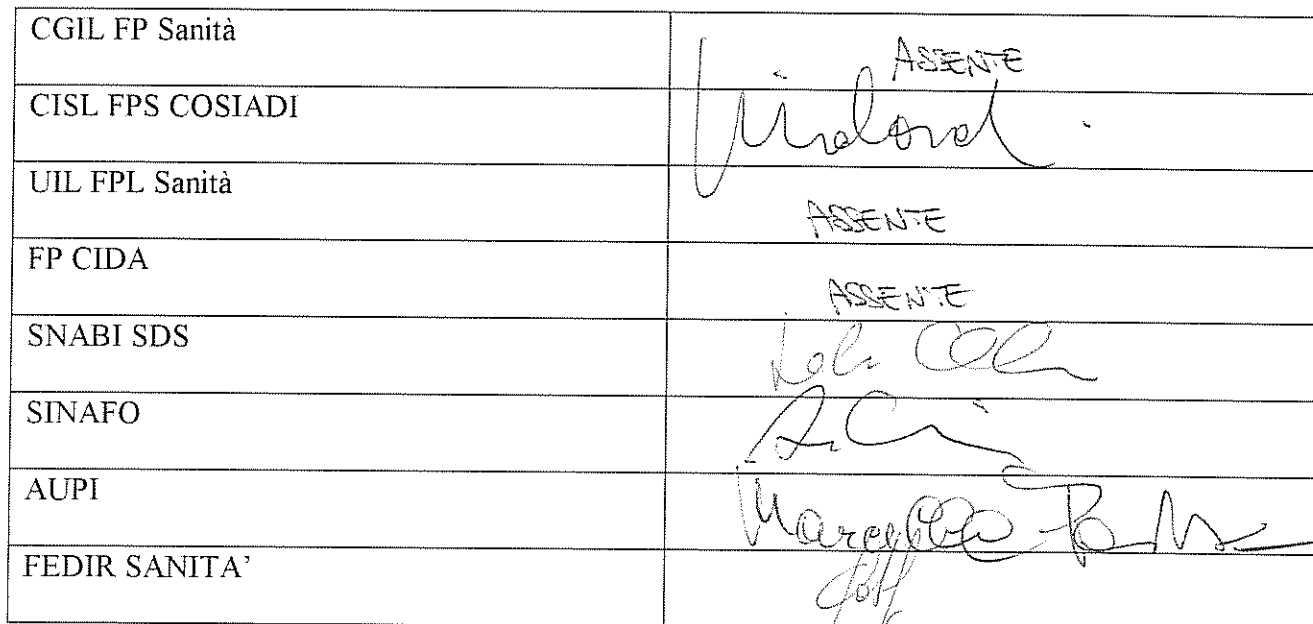 CGIL FP Sanità
ASSENTE
CISL FPS COSIADI
UIL FPL Sanità
ASSENTE
FP CIDA
ASSENTE
SNABI SDS
SINAFO
AUPI
Marcello
FEDIR SANITA’